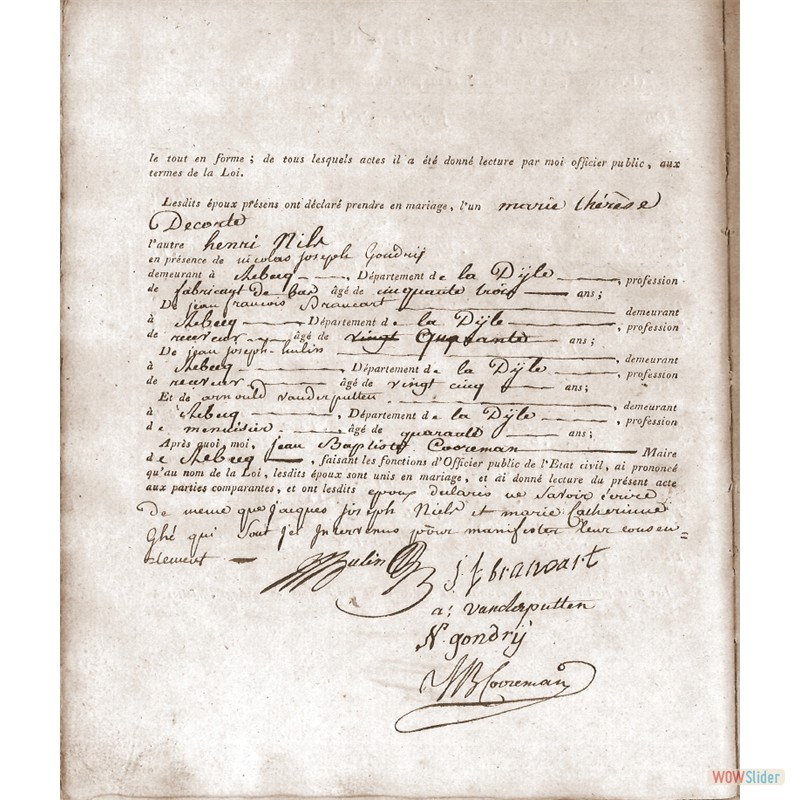 le tout en forme ; de tous lesquels actes il a été donné lecture par moi officier public, aux
termes de la Loi.
Lesdits époux présens ont déclaré prendre en mariage, l'un marie thérèse
Decorte
l'autre henri Nils
en présence de nicolas joseph Gondrij
demeurant à Rebecq, Département de la Dijle, profession
de fabricant de bas âgé de cinquante trois ans ;
De jean francois Brancart demeurant
à Rebecq, Département de la Dijle, profession
de receveur âgé de vingt quarante ans ;
De jean joseph hulin, demeurant
à Rebecq, Département de la Dijle, profession
de receveur âgé de vingt cinq ans ;
Et de arnould vanderputten, demeurant
à Rebecq, Département de la Dijle, profession
de menuisier, âgé de quarante ans ;
Après quoi, moi, jean Baptiste Cooreman Maire
de Rebecq, faisant les fonctions d'Officier public de l'Etat civil, ai prononcé
qu'au nom de la Loi, lesdits époux sont unis en mariage, et ai donné lecture du présent acte
aux parties comparantes, et ont lesdits epoux declarés ne savoir écrire
De meme que jacques joseph Niels et marie Catherinne
Ghé qui sont ici Intervenus pour manifester leur consen=
tement
hulin
j. f brancart
a: vanderputten
N. gondrij
JB Cooreman
WOWSlider